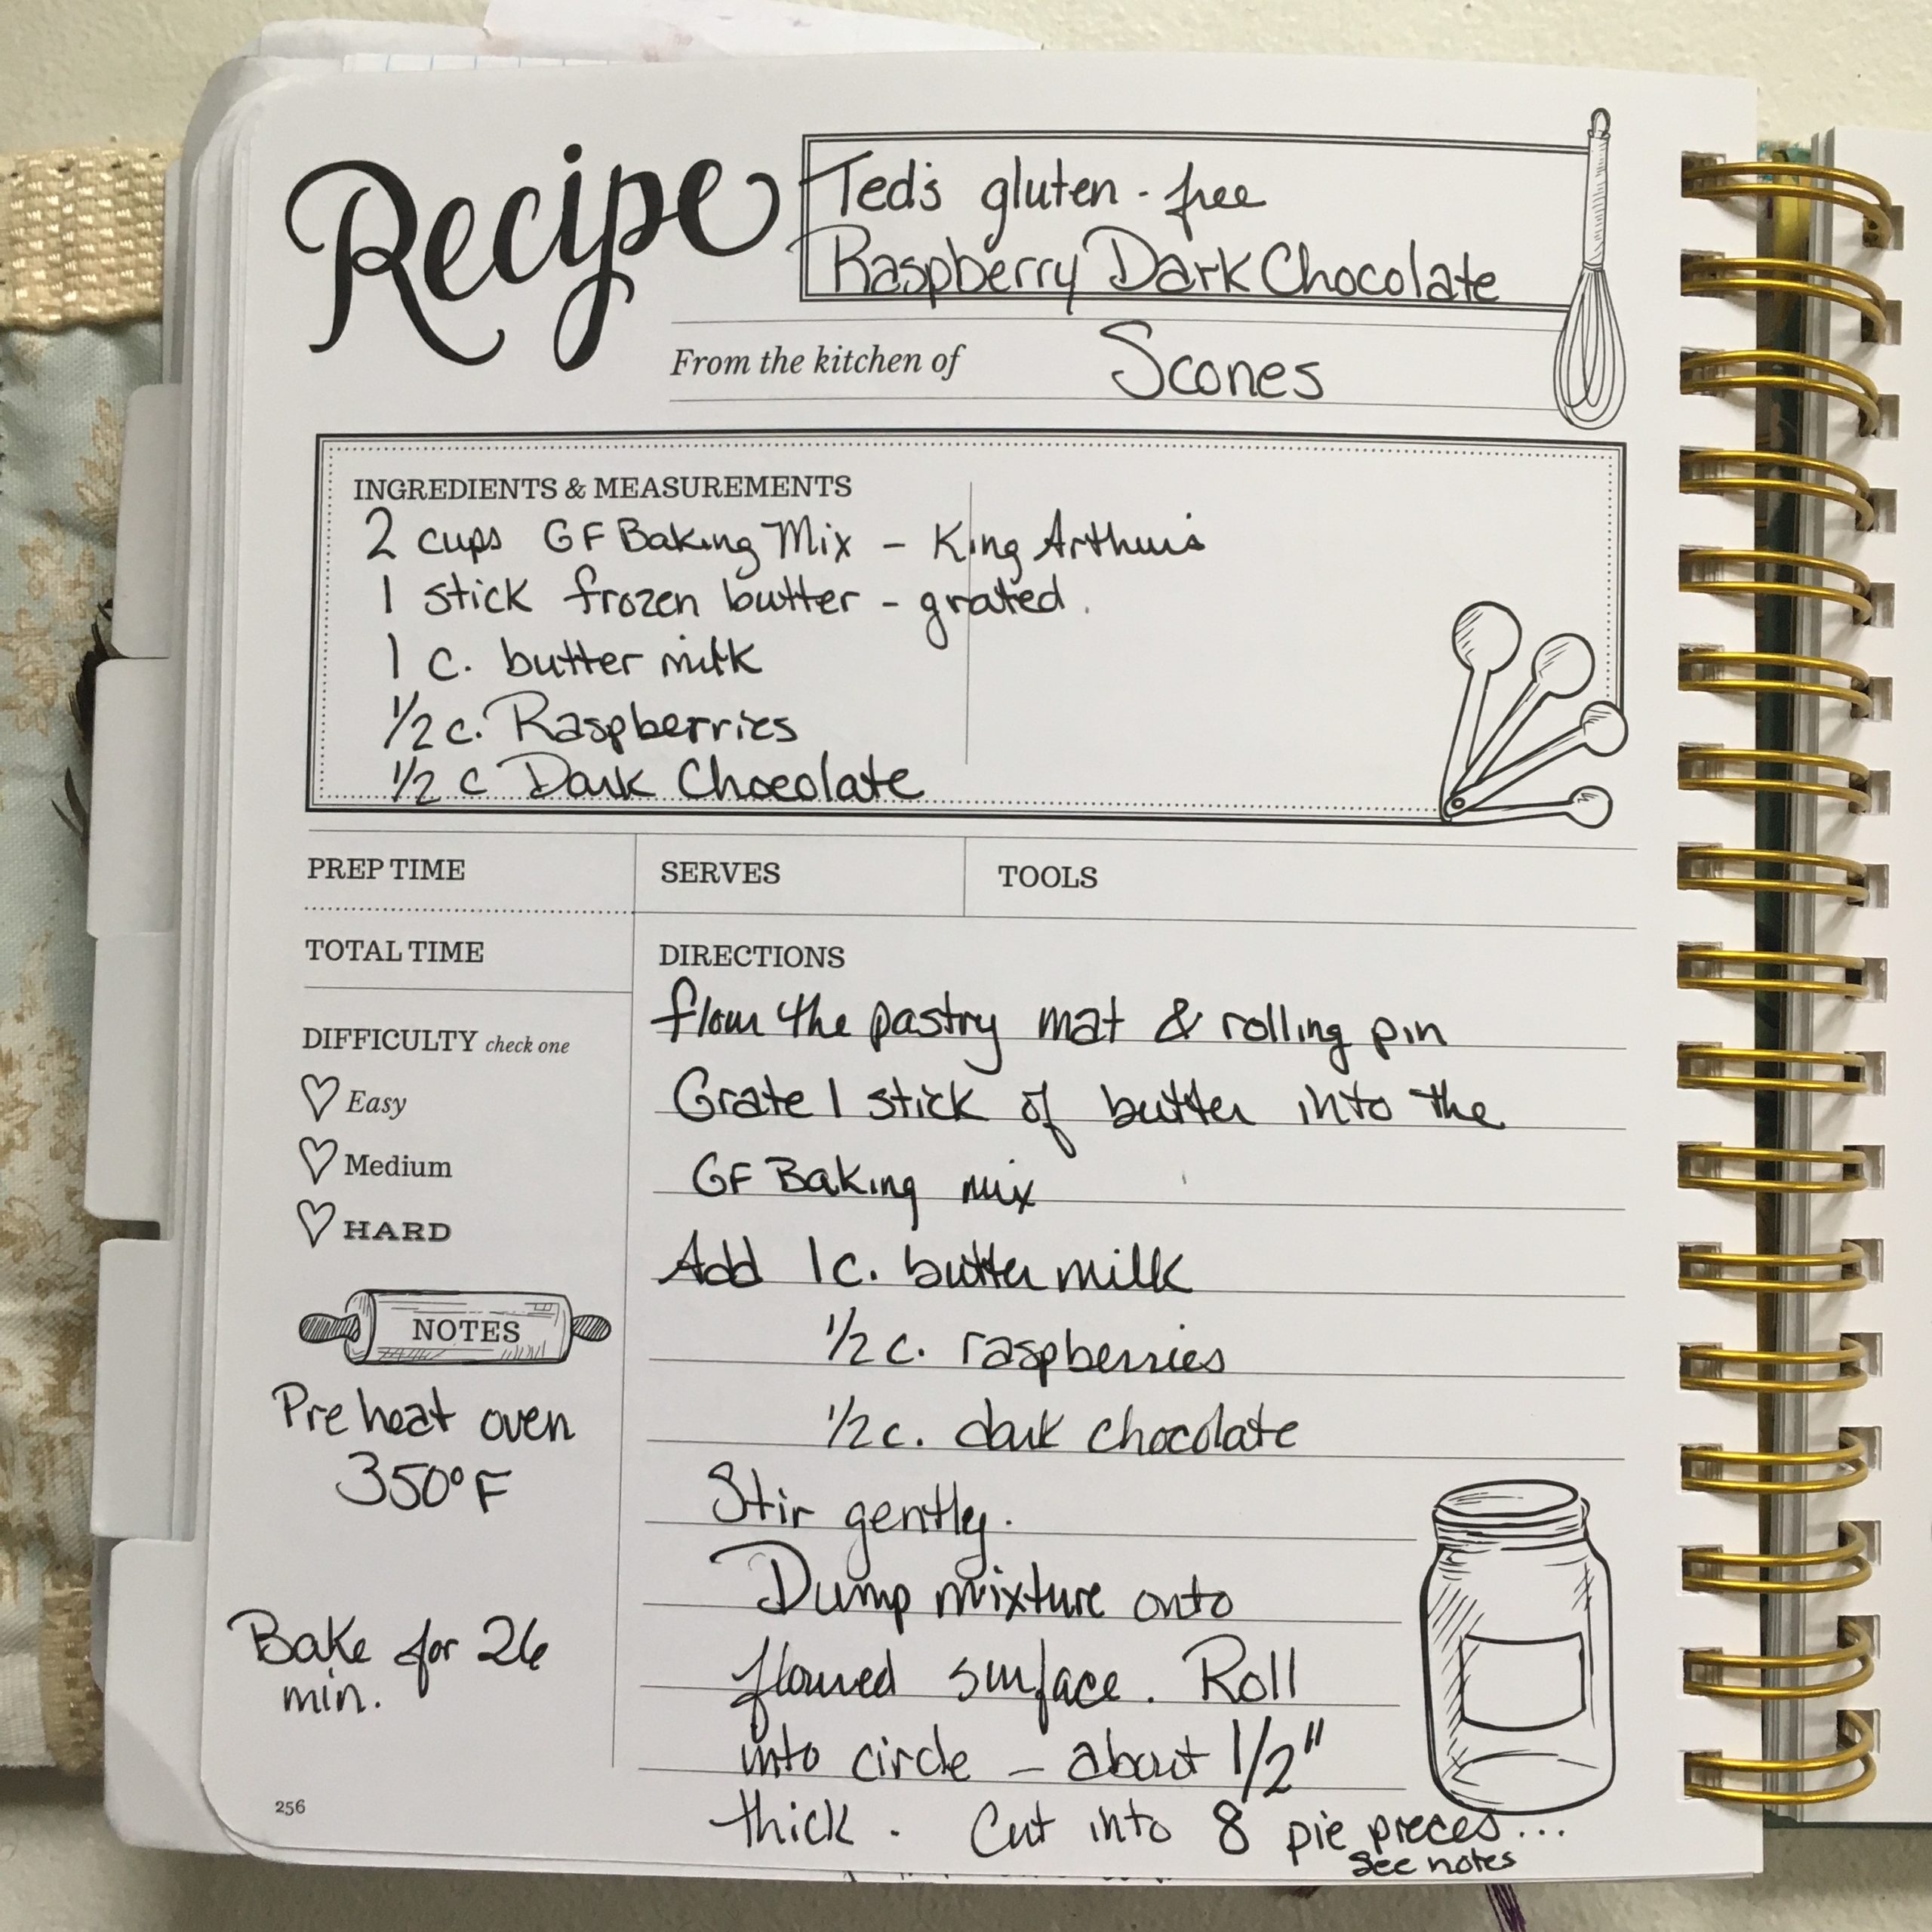 Recipe
Ted's gluten-free
Raspberry Dark Chocolate
From the kitchen of Scones
INGREDIENTS & MEASUREMENTS
2 cups GF Baking Mix - King Arthur's
1 stick frozen butter - grated.
1 c. butter milk
1/2 c. Raspberries
1/2 c Dark Chocolate
PREP TIME
SERVES
TOOLS
TOTAL TIME
DIFFICULTY check one
Easy
Medium
HARD
NOTES
Pre heat oven
350°F
Bake for 26
min.
DIRECTIONS
flour the pastry mat & rolling pin
Grate 1 stick of butter into the
GF Baking mix
Add 1c. butter milk
1/2 c. raspberries
1/2 c. dark chocolate
Stir gently.
Dump mixture onto
floured surface. Roll
into circle - about 1/2"
thick. Cut into 8 pie pieces...
See notes
256